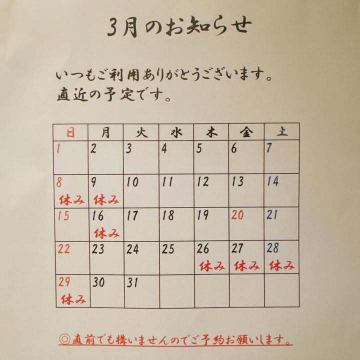 3月のお知らせ
いつもご利用ありがとうございます。
直近の予定です。
日 月 火 水 木 金 土
1 2 3 4 5 6 7
8 9 10 11 12 13 14
休み 休み
15 16 17 18 19 20 21
休み
22 23 24 25 26 27 28
休み 休み 休み
29 30 31
休み
◎直前でも構いませんのでご予約お願いします。